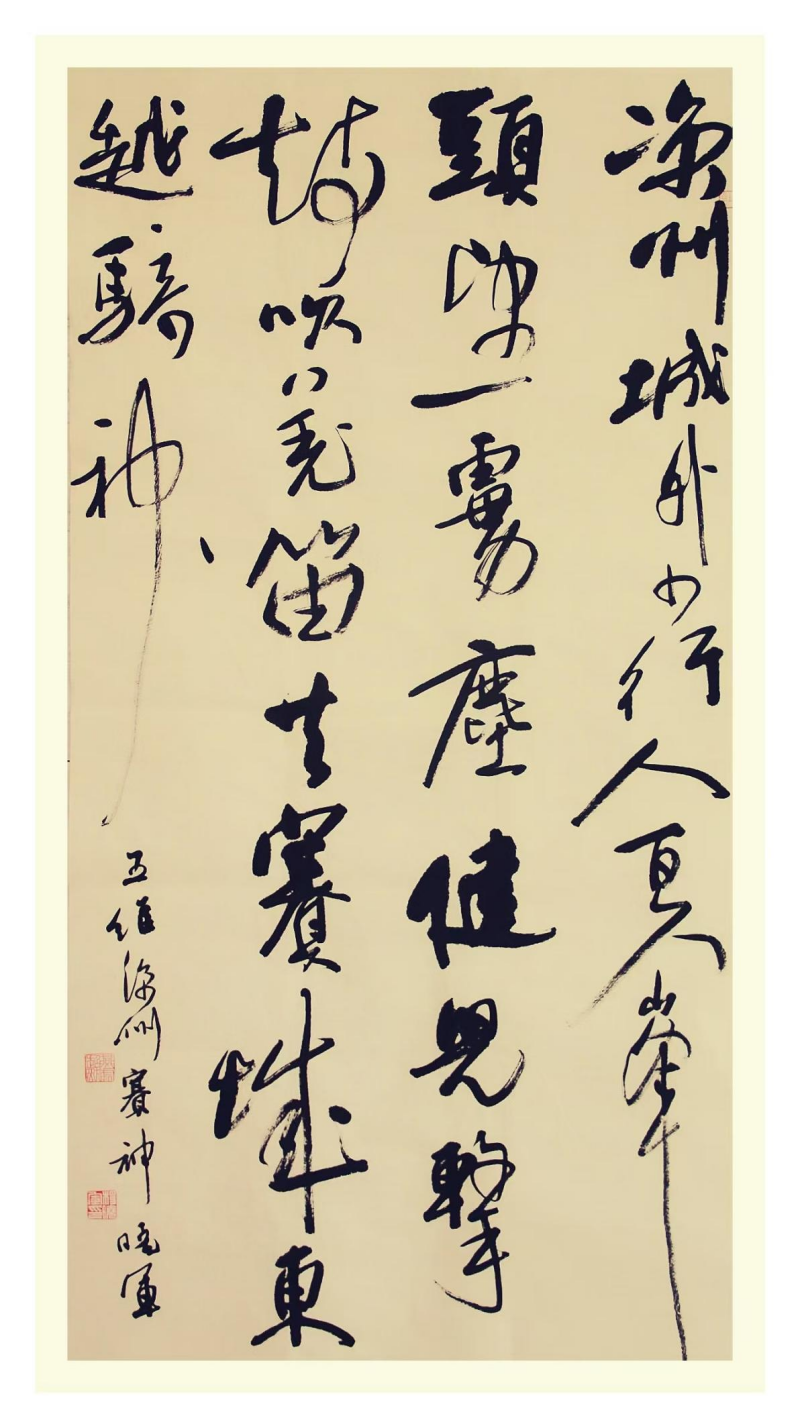 凉州城外少行人百尺峯
頭望虜塵健兒擊
鼓吹羌笛共賽城東
越騎神
王維涼州賽神 曉軍